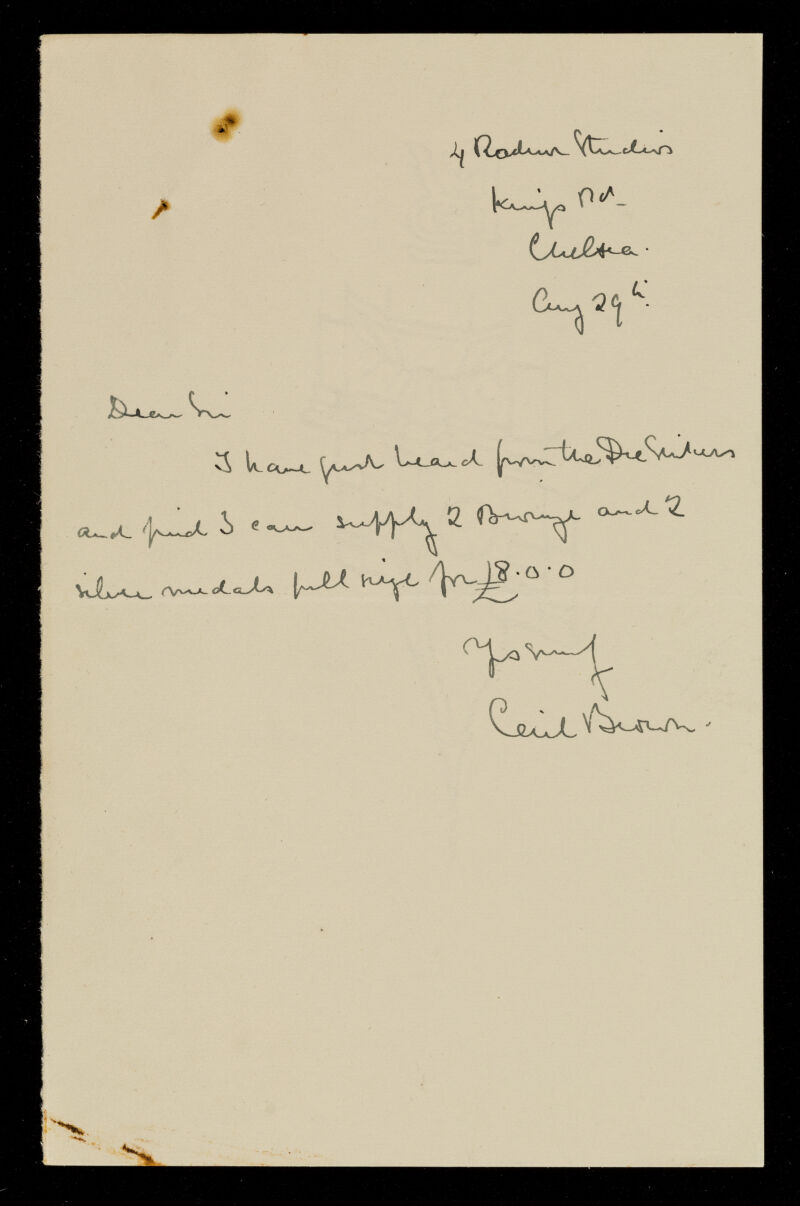 4 Radnor Studios
Kings Rd.
Chelsea.
Aug 29th.
Dear Sir
I have just heard from the Die Strikers
and find I can supply 2 Bronze and 2
silver medals full size for £8.0.0
Cecil Brown.